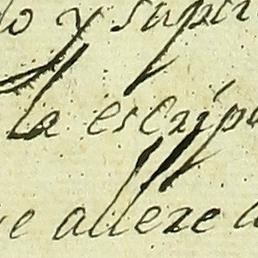 lo y supri
la escrip
e allere a